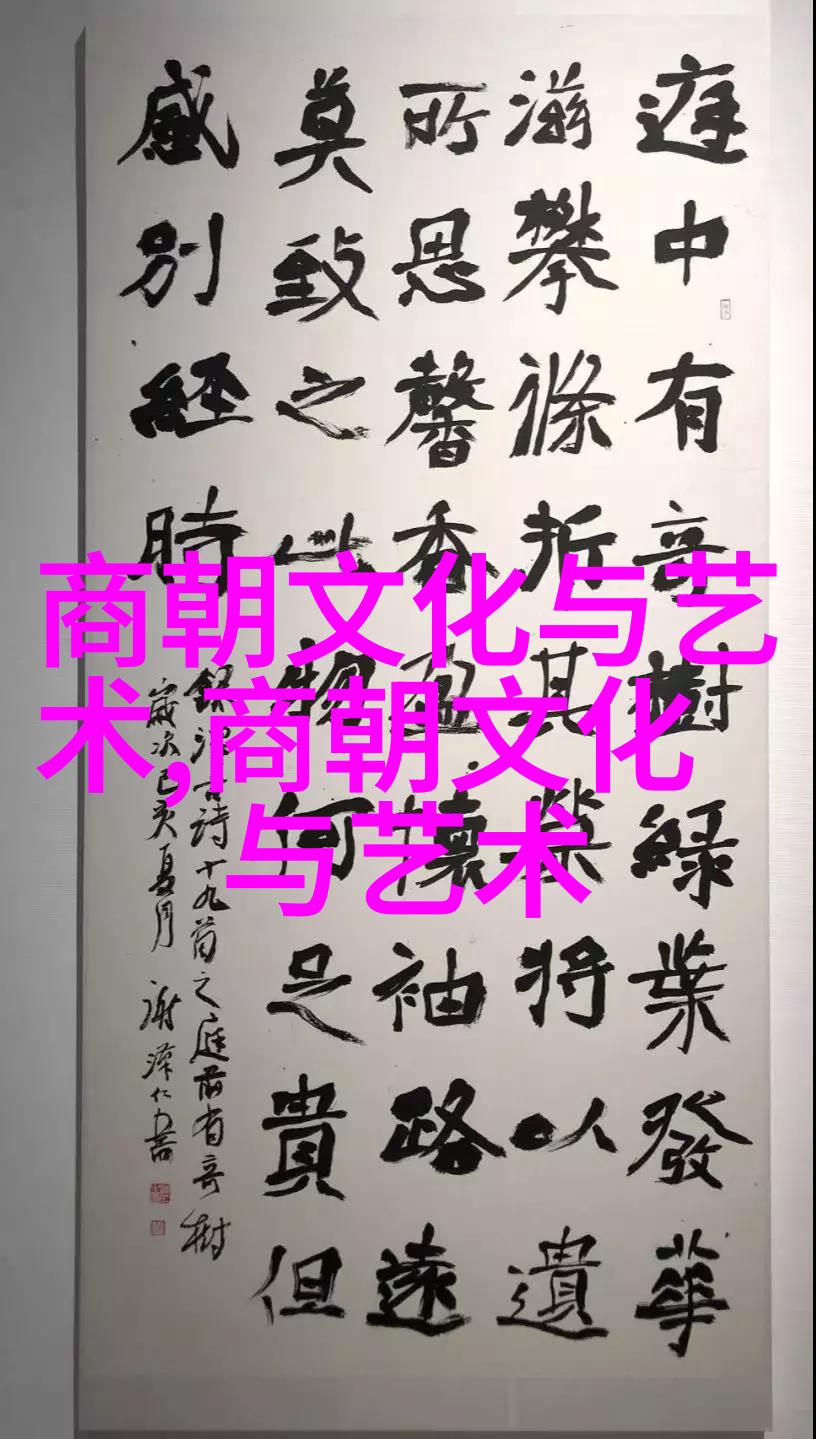 商朝文化与艺
术,商朝文化
与艺术
庭中有奇樹綠葉發華
滋攀條折其榮將以遺
所思馨香盈懷袖路遠
莫致之此物何足貴但
感別經時
錄漢古詩十九首之庭前有奇樹
歲次己亥夏月 謝澤仁書